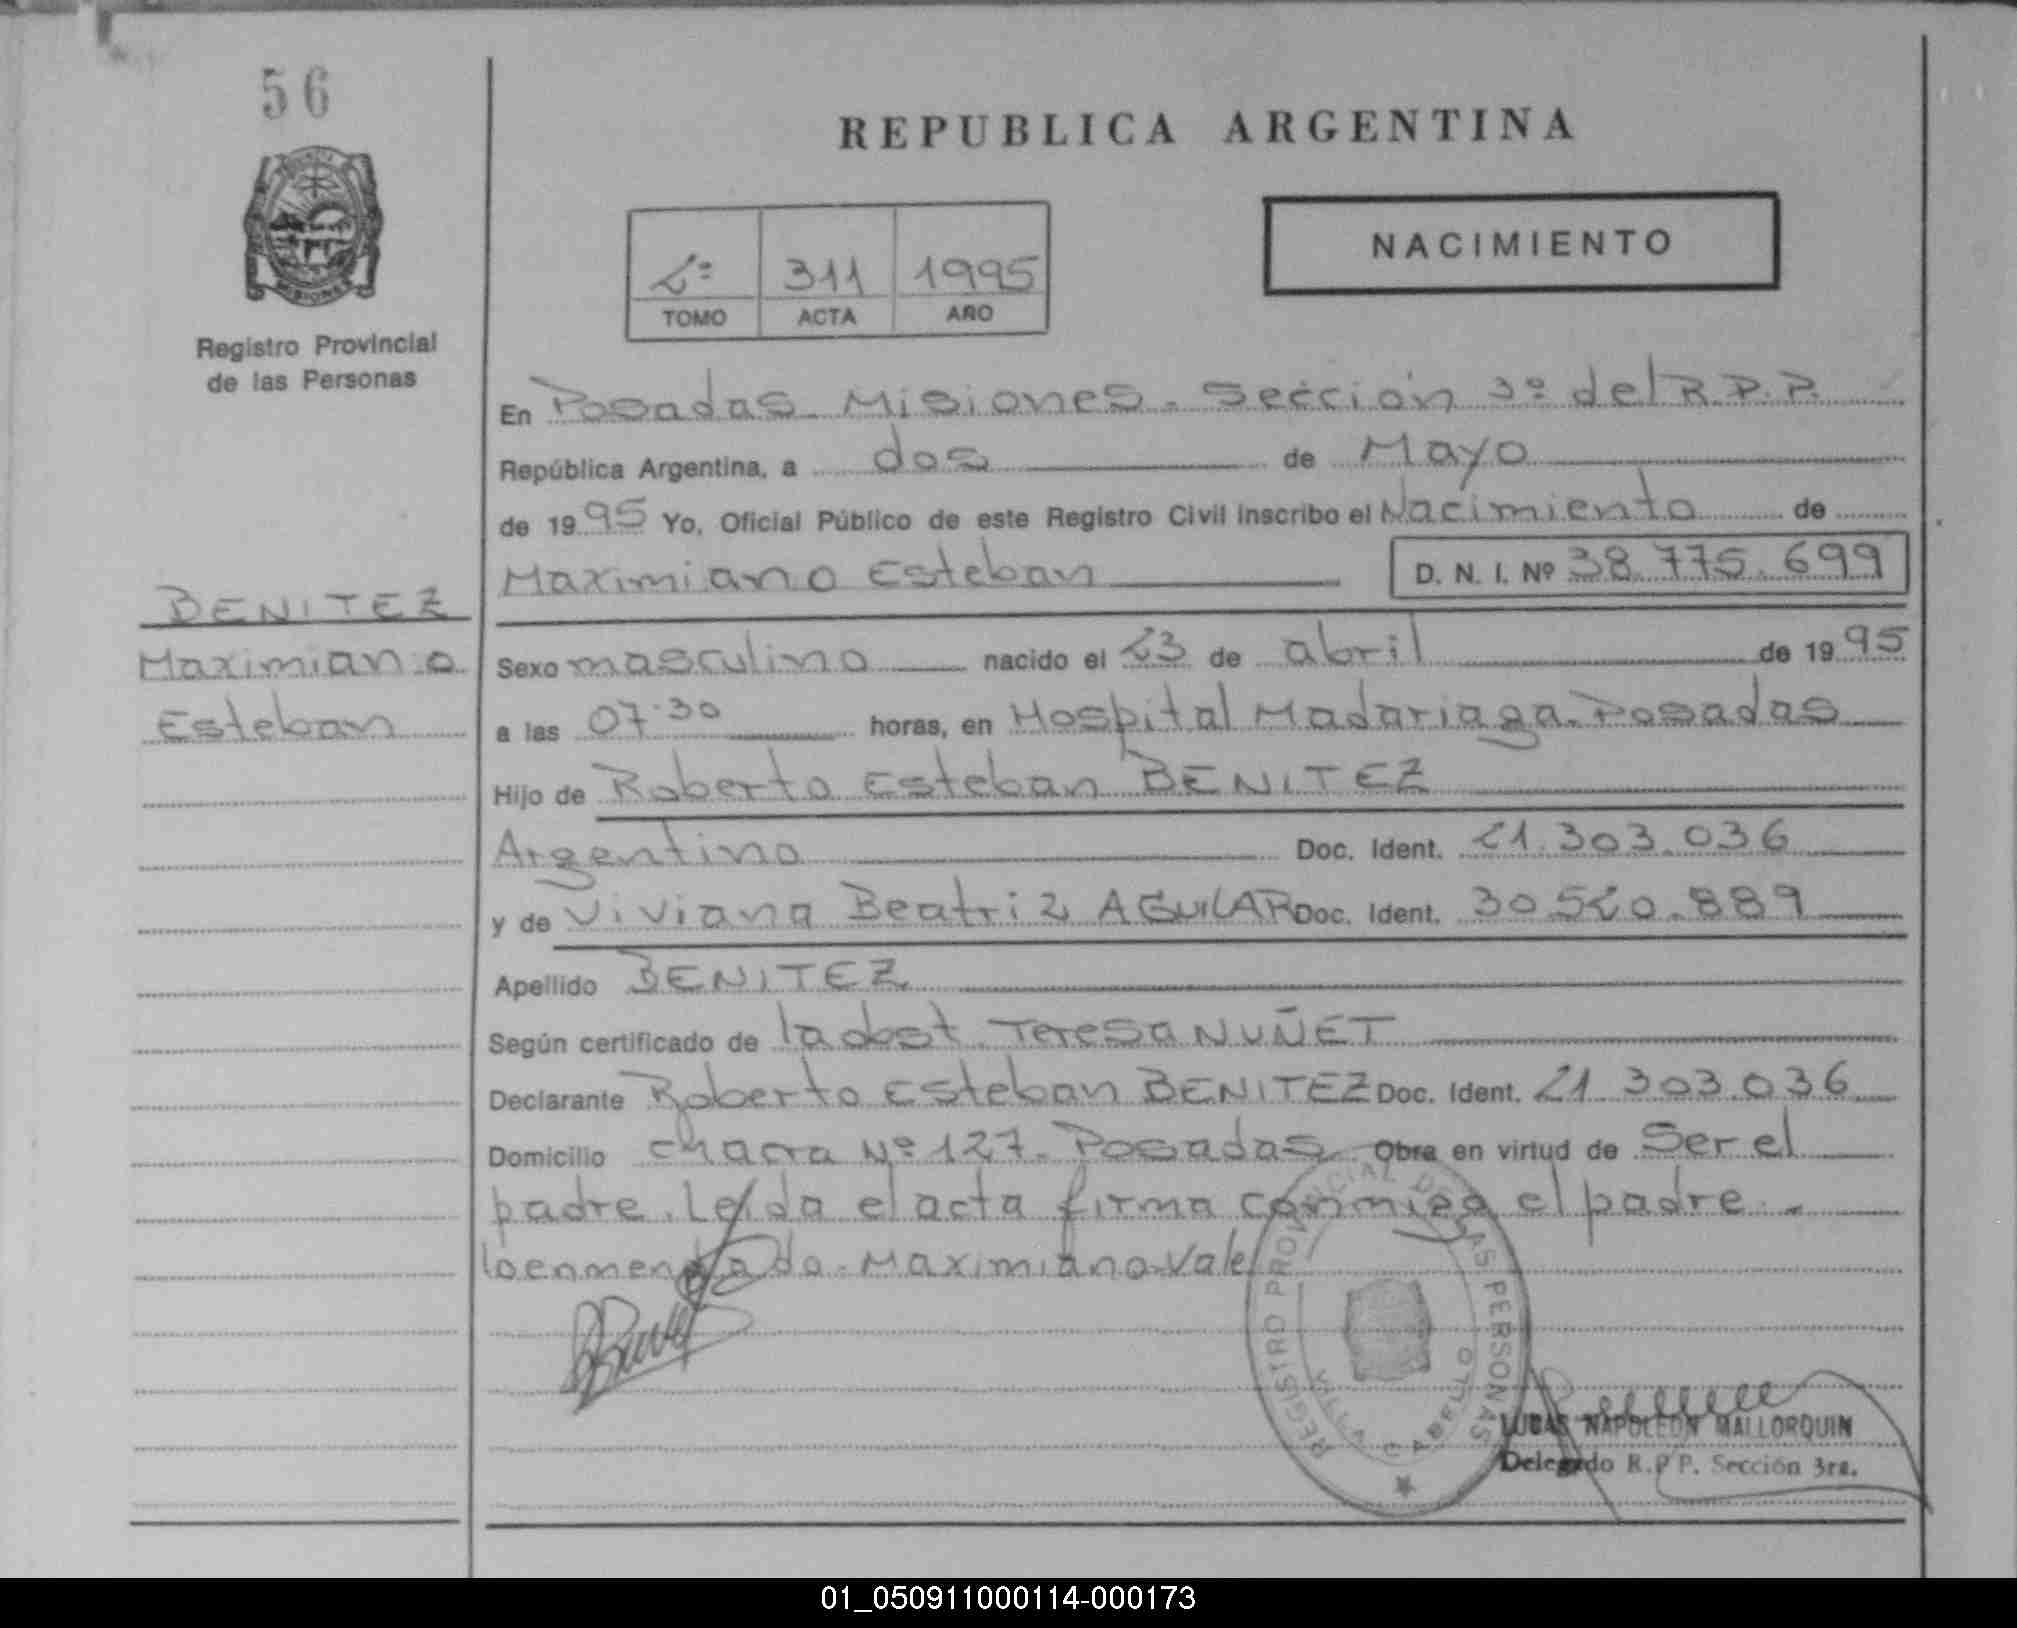 56
REPUBLICA ARGENTINA
2º 311 1995
TOMO ACTA AÑO
NACIMIENTO
MISIONES
Registro Provincial
de las Personas
En Posadas. Misiones. Sección 3º del R.P.P.
República Argentina, a dos de Mayo
de 1995 Yo, Oficial Público de este Registro Civil inscribo el Nacimiento de
Maximiano Esteban D. N. I. Nº 38.775.699
BENITEZ
Maximiano
Esteban
Sexo masculino nacido el 23 de abril de 1995
a las 07.30 horas, en Hospital Madariaga. Posadas
Hijo de Roberto Esteban BENITEZ
Argentino Doc. Ident. 21.303.036
y de Viviana Beatriz AGUILAR Doc. Ident. 30.520.889
Apellido BENITEZ
Según certificado de la obst. Teresa NUÑET
Declarante Roberto Esteban BENITEZ Doc. Ident. 21.303.036
Domicilio chacra Nº 127. Posadas Obra en virtud de Ser el
padre. Leída el acta firma conmigo el padre.-
lo enmendado. Maximiano. Vale
REGISTRO PROVINCIAL DE LAS PERSONAS
VILLA CABELLO
LUCAS NAPOLEON MALLORQUIN
Delegado R.P.P. Sección 3ra.
01_050911000114-000173